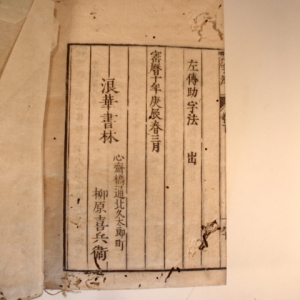 左傳助字法　出
寳曆十年庚辰春三月
浪華書林
心齋橋通北久太郎町
柳原喜兵衛